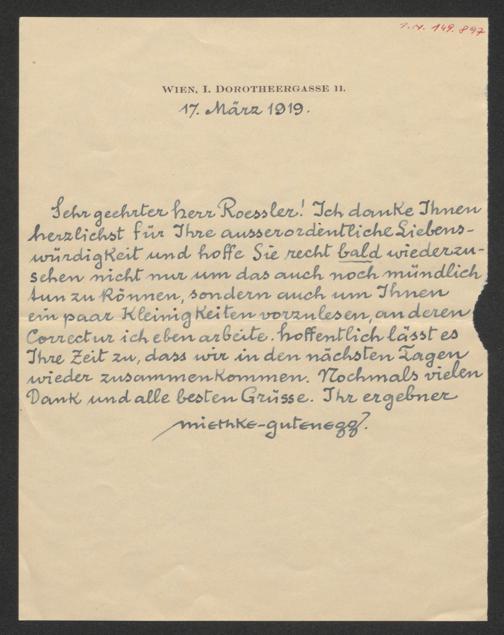 I.N. 149.897
WIEN, I. DOROTHEERGASSE 11.
17. März 1919.
Sehr geehrter Herr Roessler! Ich danke Ihnen
herzlichst für Ihre ausserordentliche Liebens-
würdigkeit und hoffe Sie recht bald wiederzu-
sehen nicht nur um das auch noch mündlich
tun zu können, sondern auch um Ihnen
ein paar Kleinigkeiten vorzulesen, an deren
Correctur ich eben arbeite. Hoffentlich lässt es
Ihre Zeit zu, dass wir in den nächsten Tagen
wieder zusammenkommen. Nochmals vielen
Dank und alle besten Grüsse. Ihr ergebner
miethke-gutenegg.